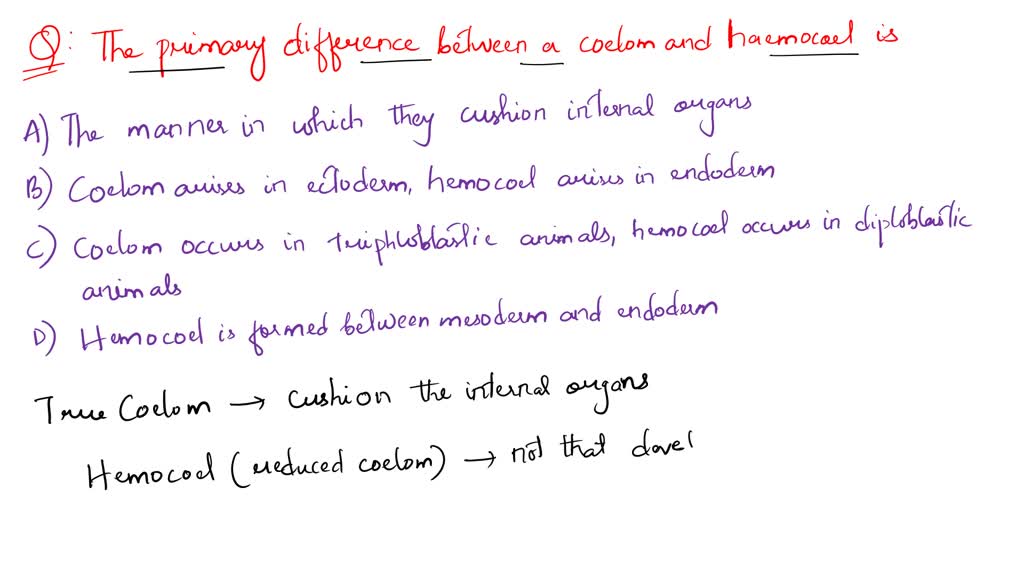 Q: The primary difference between a coelom and haemocoel is
A) The manner in which they cushion internal organs
B) Coelom arises in ectoderm, hemocoel arises in endoderm
C) Coelom occurs in triphloblastic animals, hemocoel occurs in diploblastic
animals
D) Hemocoel is formed between mesoderm and endoderm
True Coelom → cushion the internal organs
Hemocoel (reduced coelom) → not that devel